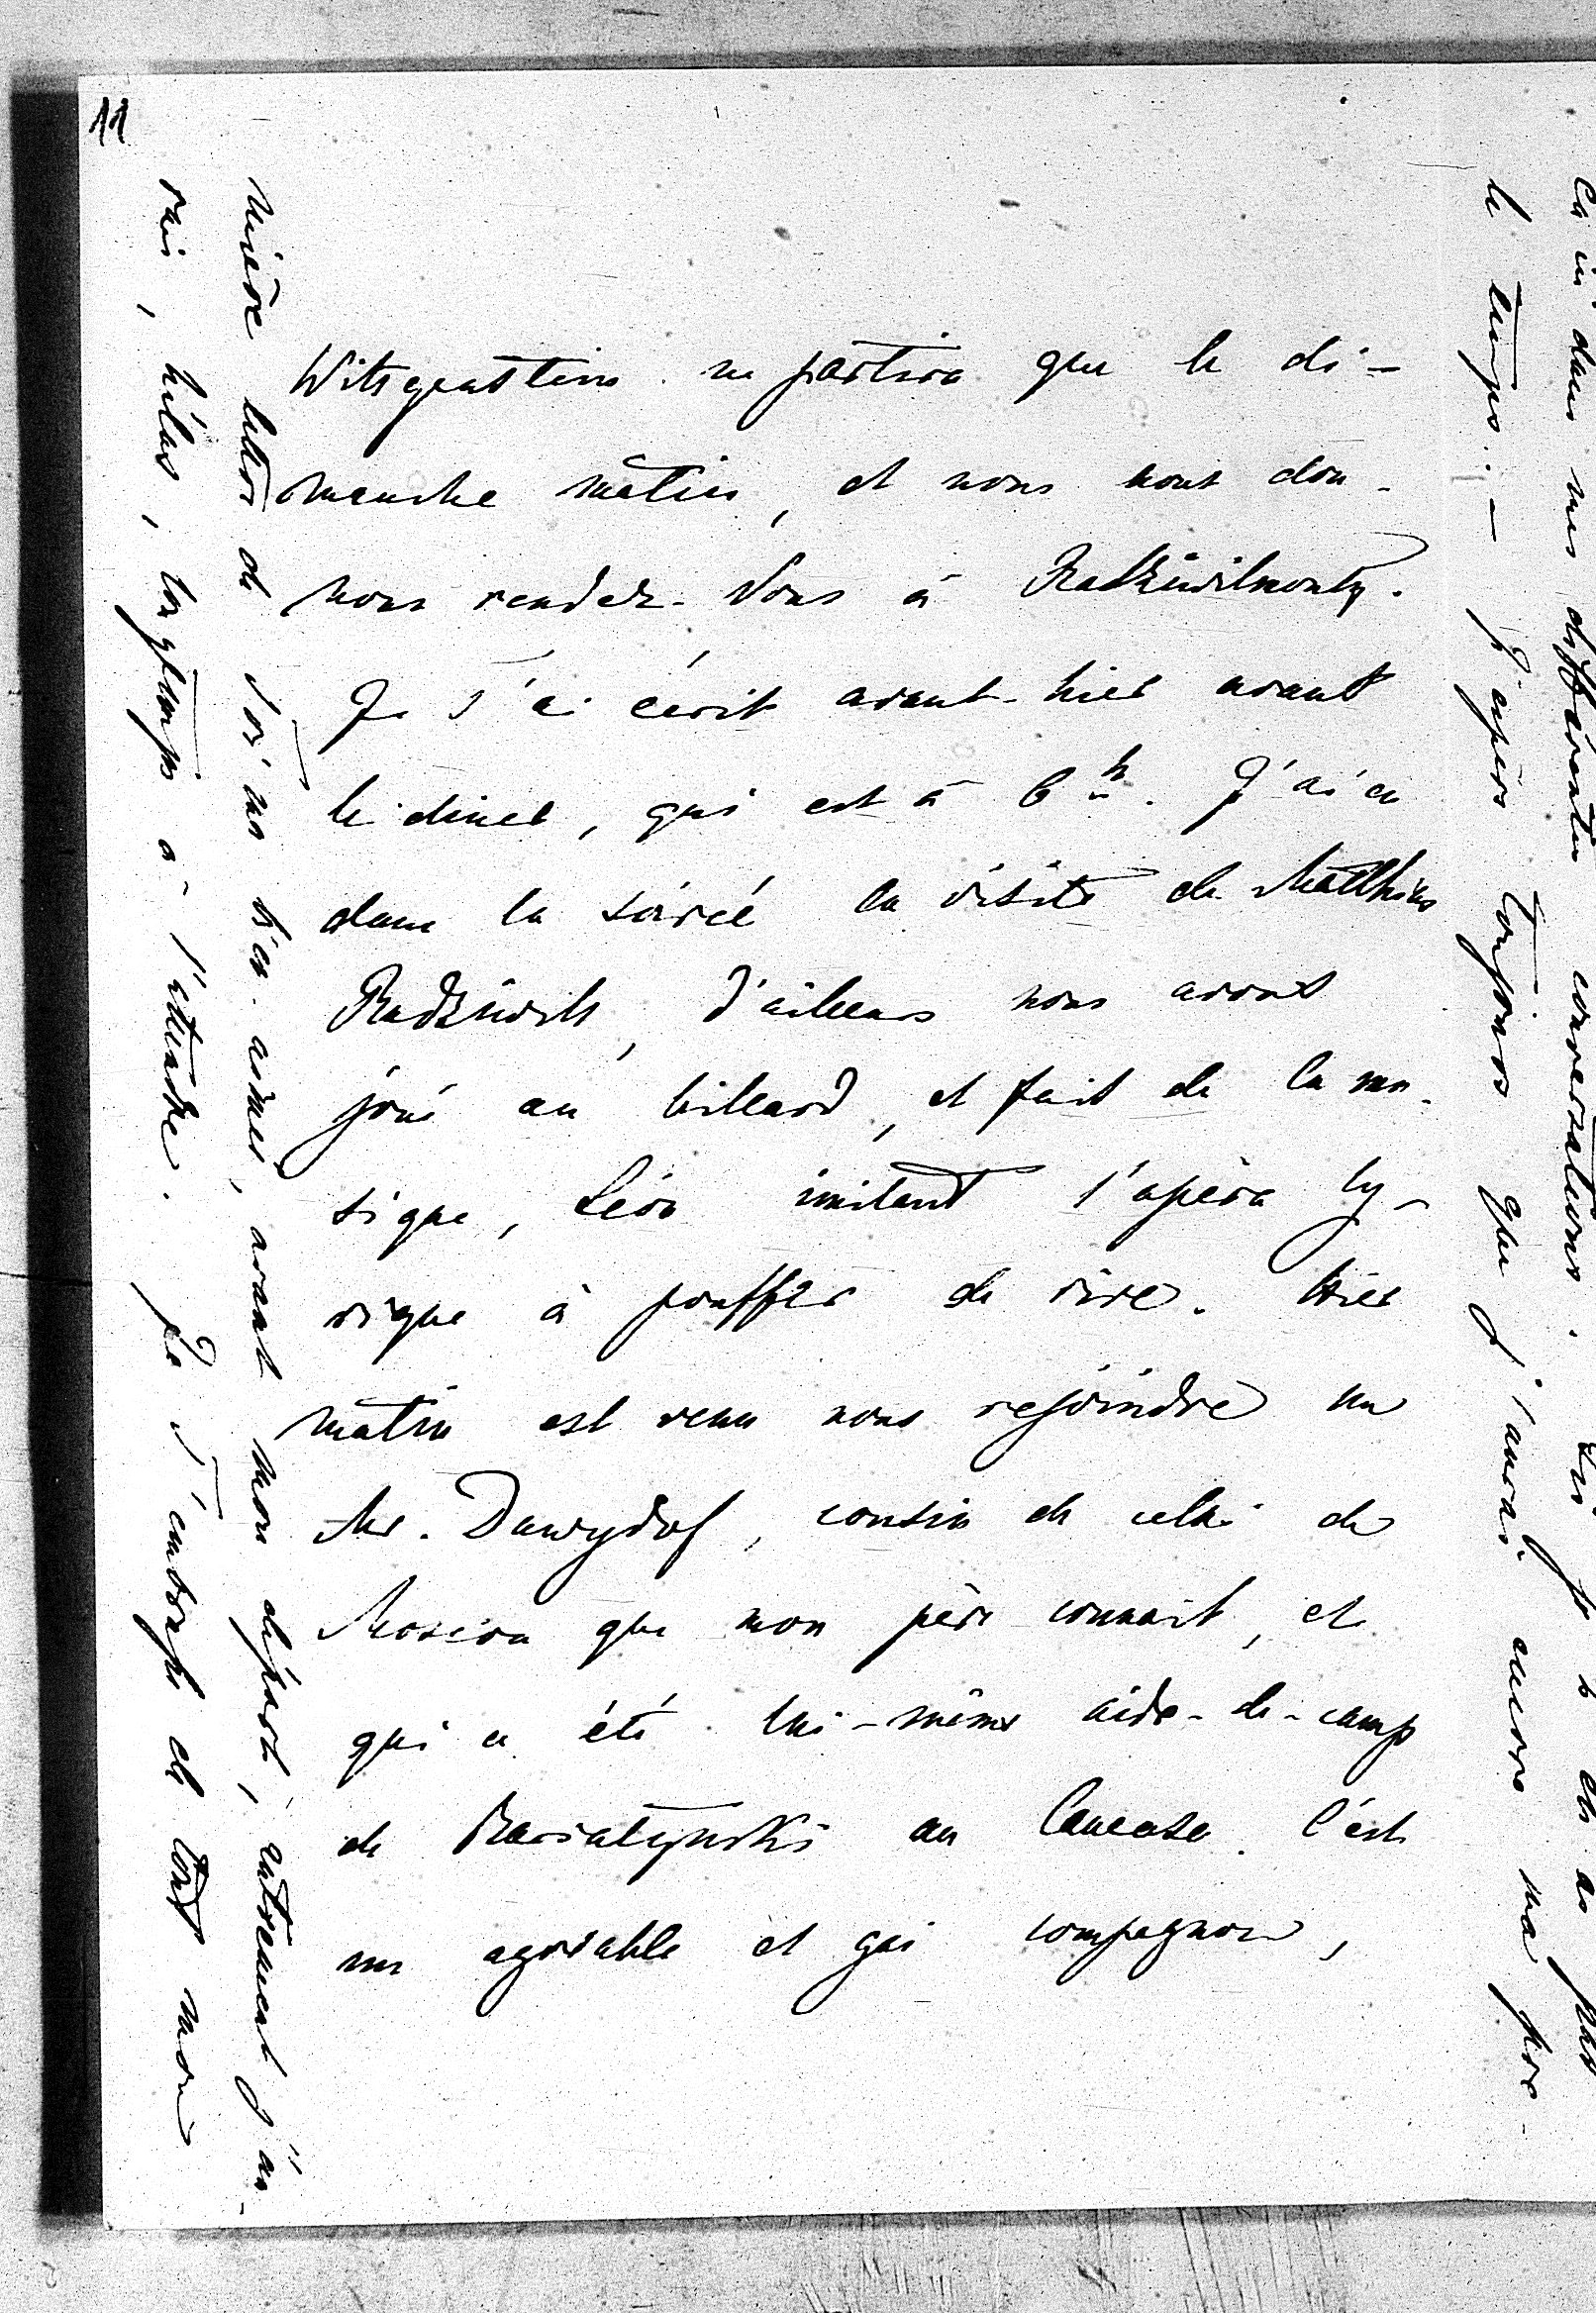 11
Witsgenstein ne partira que le di-
manche matin, et nous nous don-
nons rendez-vous à Radziwilmonty.
Je t'ai écrit avant-hier avant
le diner, qui est à 6 h. J'ai eu
dans la soirée la visite de Matthias
Radziwill, d'ailleurs nous avons
joué au billard, et fait de la mu-
sique, Léon imitant l'opéra ly-
rique à pouffer de rire. Hier
matin est venu nous rejoindre un
Mr. Dawydof, cousin de celui de
Moscou que mon père connait, et
qui a été lui-même aide-de-camp
de Bariatynski au Caucase. C'est
un agréable et gai compagnon,
ca ni dans mes différentes conversations. je n'en ai pas
le temps. - J'espère toujours que j'aurai encore ma pre-
mière lettre de toi ma bien-aimée, avant mon départ, autrement j'au-
rais, hélas, longtemps à l'attendre. Je t'embrasse de tout mon